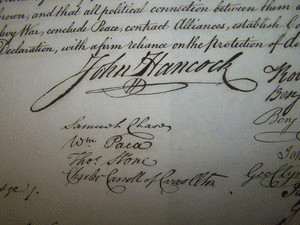 rown, and that all political connection between them
evy War, conclude Peace, contract Alliances, establish
Declaration, with a firm reliance on the protection of
John Hancock
Samuel Chase
Wm Paca
Thos Stone
Charles Carroll of Carrollton
Benj
Geo Clym